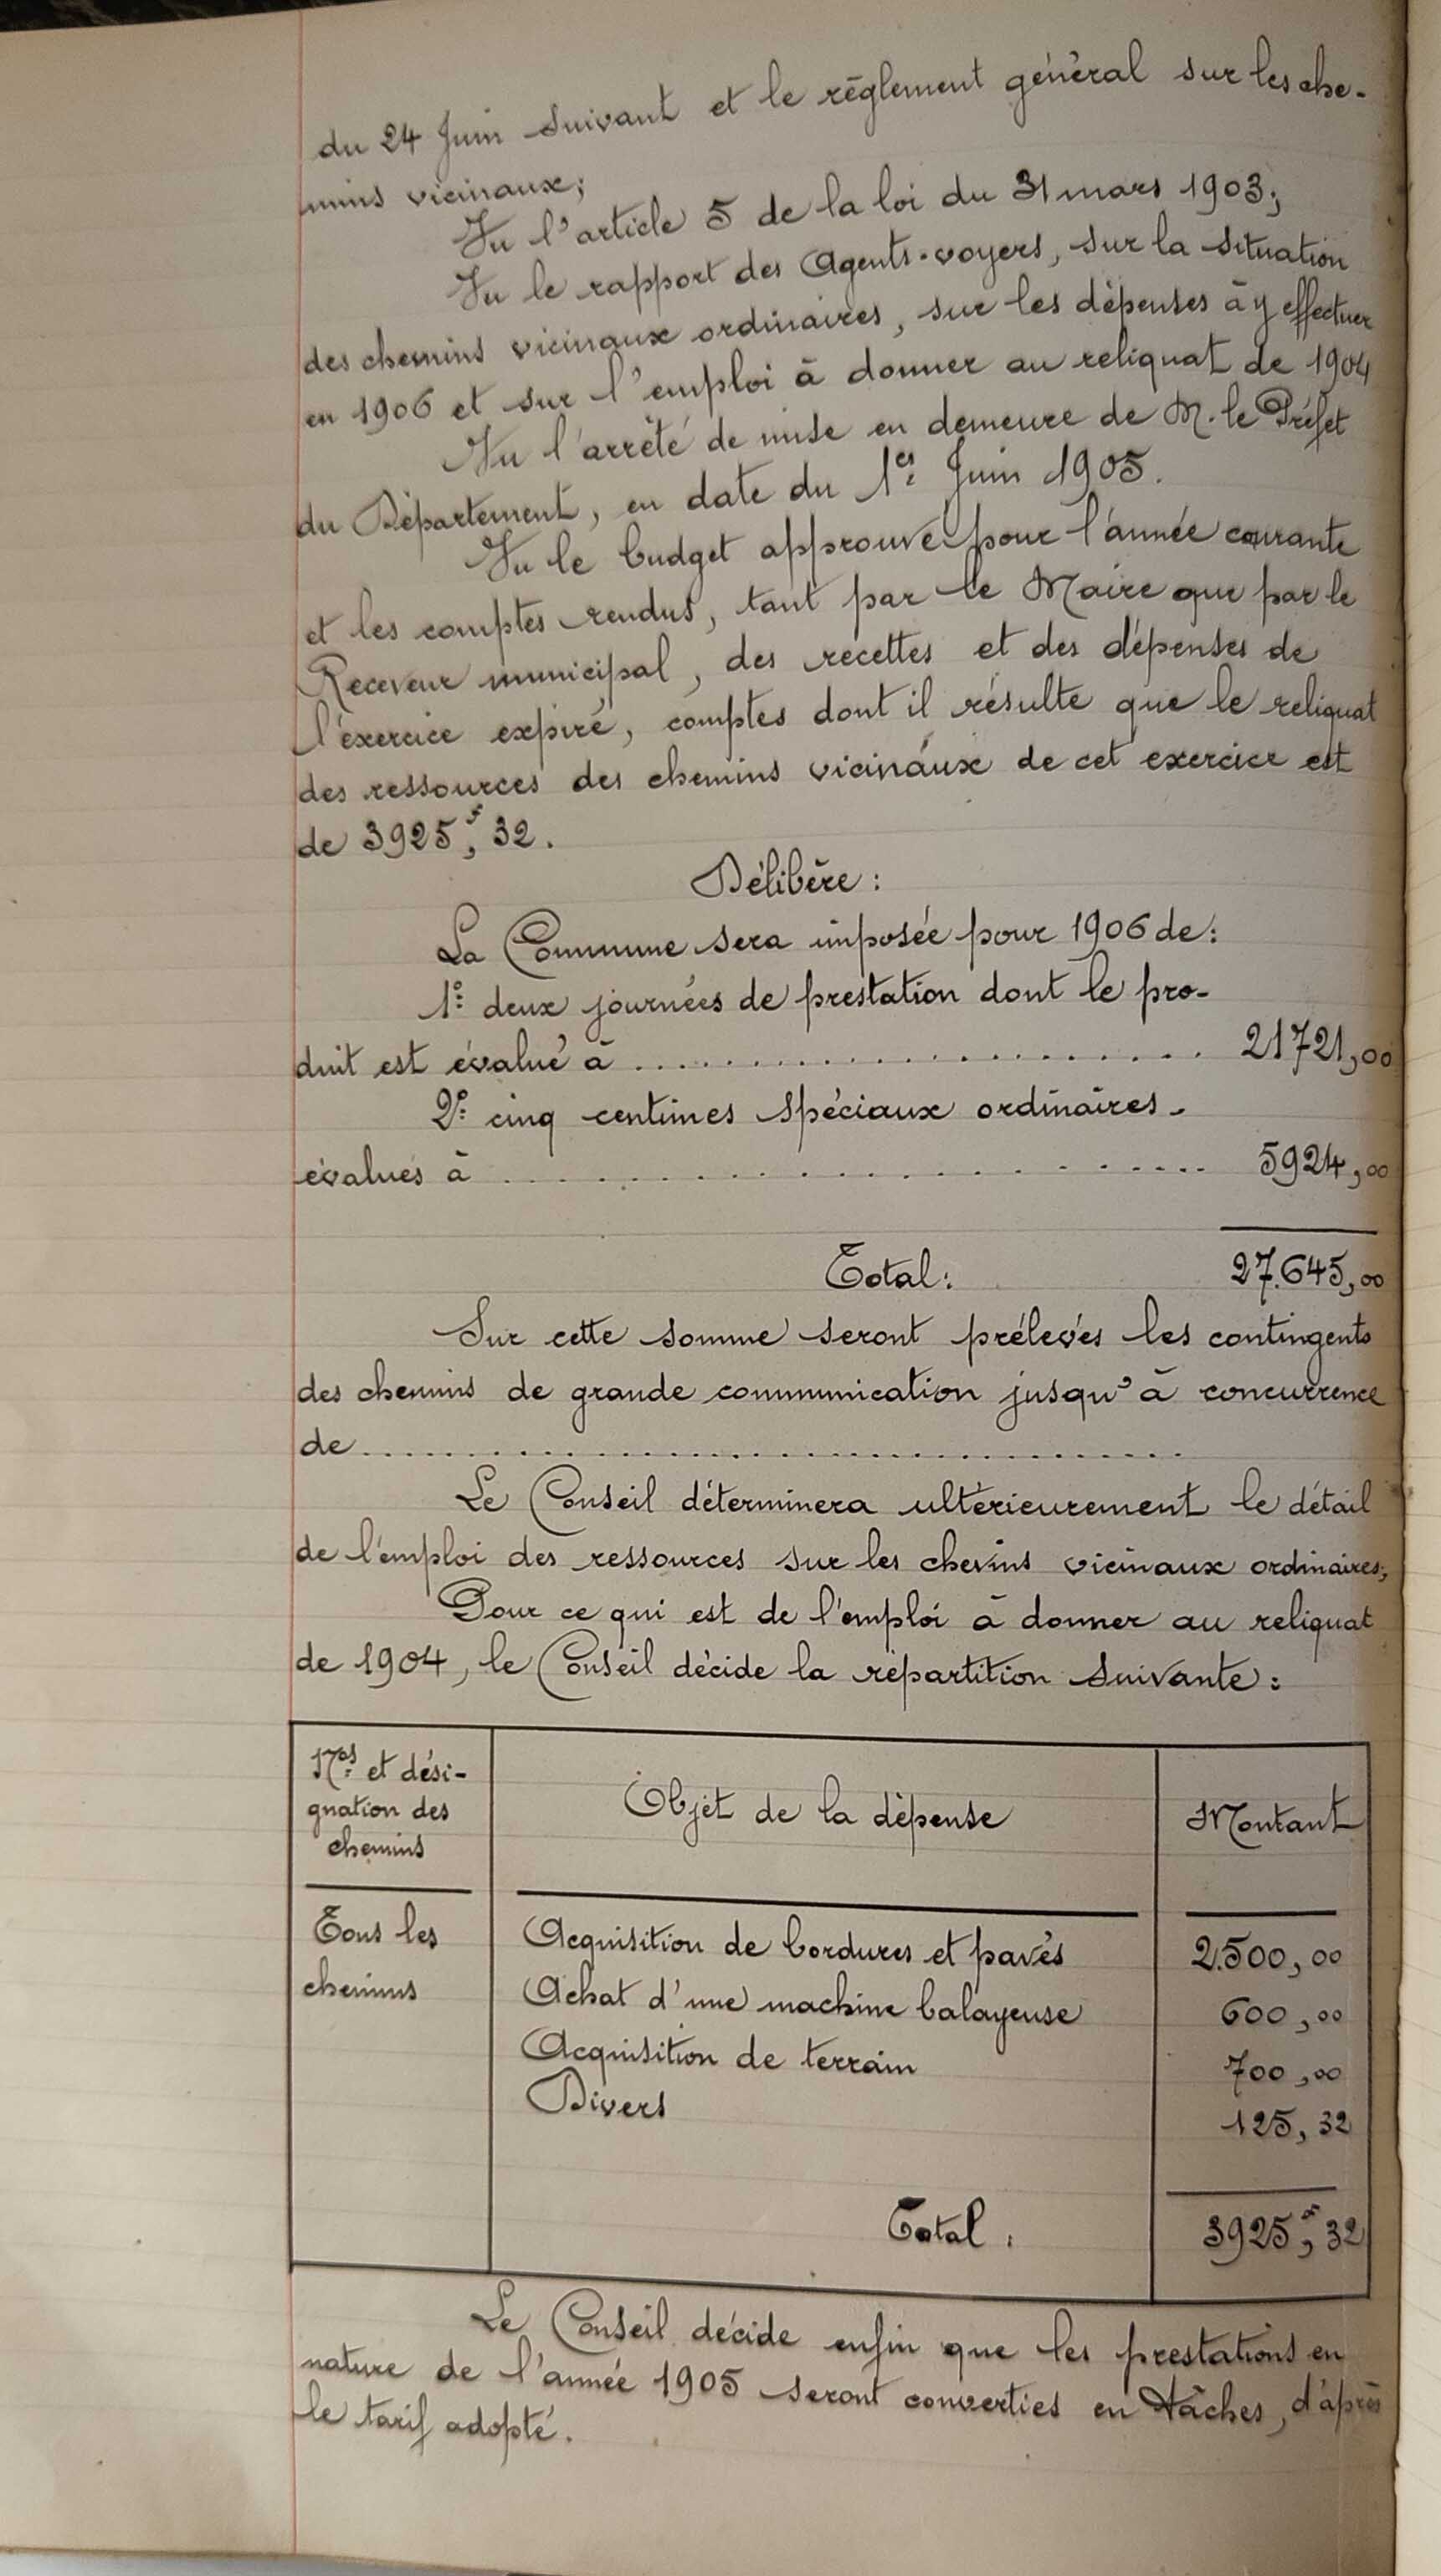 du 24 Juin suivant et le réglement général sur les che-
mins vicinaux;
Vu l'article 5 de la loi du 31 mars 1903;
Vu le rapport des Agents-voyers, sur la situation
des chemins vicinaux ordinaires, sur les dépenses à y effectuer
en 1906 et sur l'emploi à donner au reliquat de 1904
Vu l'arrêté de mise en demeure de M. le Préfet
du Département, en date du 1er Juin 1905.
Vu le budget approuvé pour l'année courante
et les comptes rendus, tant par le Maire que par le
Receveur municipal, des recettes et des dépenses de
l'exercice expiré, comptes dont il résulte que le reliquat
des ressources des chemins vicinaux de cet exercice est
de 3925f,32.
Délibère:
La Commune sera imposée pour 1906 de:
1º: deux journées de prestation dont le pro-
duit est évalué à .................... 21721,00
2º: cinq centimes spéciaux ordinaires-
évalués à .................... 5924,00
Total: 27.645,00
Sur cette somme seront prélevés les contingents
des chemins de grande communication jusqu'à concurrence
de..............................
Le Conseil déterminera ultérieurement le détail
de l'emploi des ressources sur les chemins vicinaux ordinaires;
Pour ce qui est de l'emploi à donner au reliquat
de 1904, le Conseil décide la répartition suivante:
Nos et dési-
gnation des
chemins
Objet de la dépense
Montant
Tous les
chemins
Acquisition de bordures et pavés 2.500,00
Achat d'une machine balayeuse 600,00
Acquisition de terrain 700,00
Divers 125,32
Total: 3925f,32
Le Conseil décide enfin que les prestations en
nature de l'année 1905 seront converties en tâches, d'après
le tarif adopté.